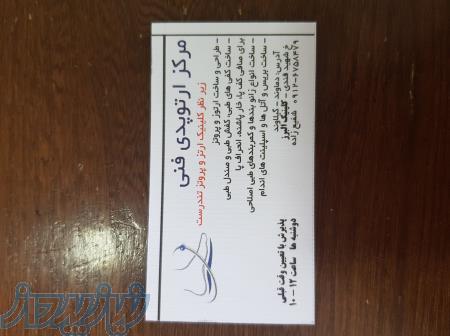 مرکز ارتوپدی فنی
زیر نظر کلینیک ارتز و پروتز تندرست
- طراحی و ساخت ارتوز و پروتز
- ساخت کفی های طبی، کفش طبی و صندل طبی
برای صافی کف پا، خار پاشنه، انحراف پا
- ساخت انواع زانو بندها و کمربندهای طبی اصلاحی
- ساخت بریس و آتل ها و اسپلینت های اندام
آدرس: دماوند - گیلاوند
خ شهید قندی - کلینیک البرز
۰۹۱۲-۶۷۵۸۴۷۹ شفیع زاده
پذیرش با تعیین وقت قبلی
دوشنبه ها ساعت ۱۲ - ۱۰
نیازپرداز